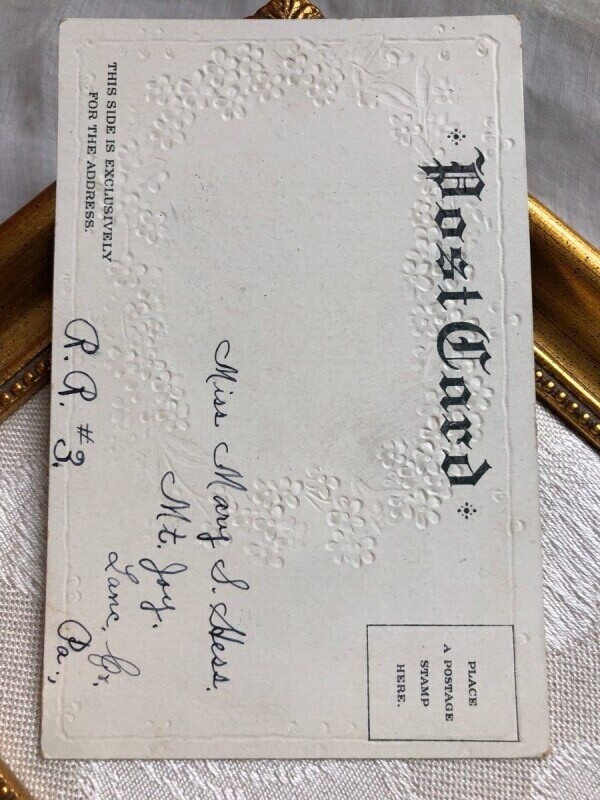 Post Card
THIS SIDE IS EXCLUSIVELY
FOR THE ADDRESS.
PLACE
A POSTAGE
STAMP
HERE.
Miss Mary S. Hess.
Mt. Joy.
Lanc, Co,
Pa.,
R. R. #3.